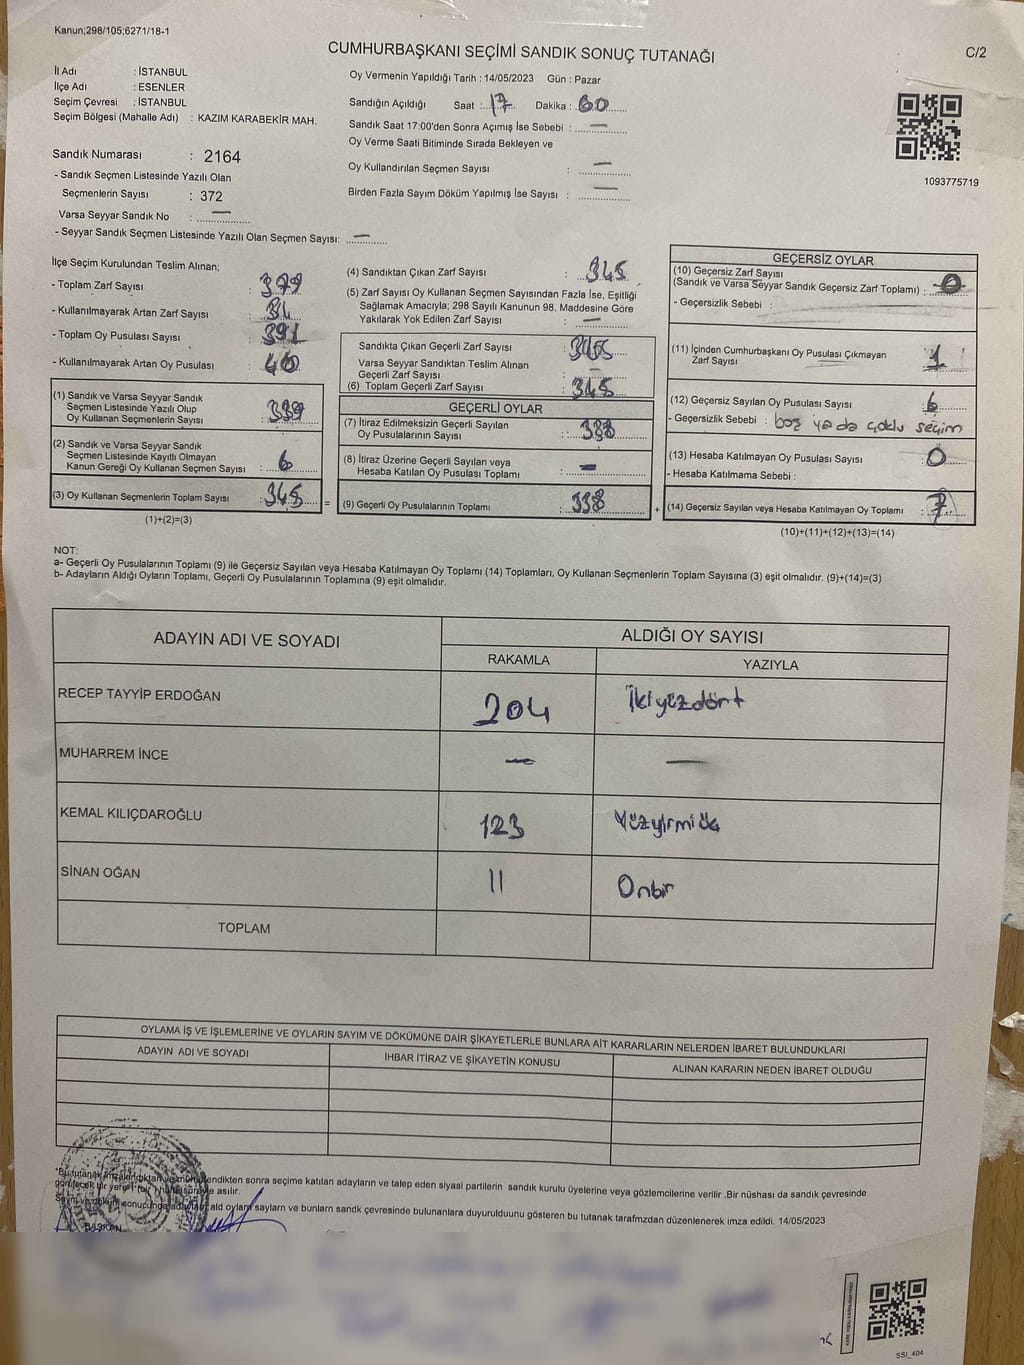 Kanun;298/105;6271/18-1
CUMHURBAŞKANI SEÇİMİ SANDIK SONUÇ TUTANAĞI
C/2
İl Adı : İSTANBUL
İlçe Adı : ESENLER
Seçim Çevresi : İSTANBUL
Seçim Bölgesi (Mahalle Adı) : KAZIM KARABEKİR MAH.
Sandık Numarası : 2164
- Sandık Seçmen Listesinde Yazılı Olan
Seçmenlerin Sayısı : 372
Varsa Seyyar Sandık No : —
- Seyyar Sandık Seçmen Listesinde Yazılı Olan Seçmen Sayısı: —
Oy Vermenin Yapıldığı Tarih : 14/05/2023 Gün : Pazar
Sandığın Açıldığı Saat : 17 Dakika : 60
Sandık Saat 17:00'den Sonra Açımış İse Sebebi : —
Oy Verme Saati Bitiminde Sırada Bekleyen ve
Oy Kullandırılan Seçmen Sayısı : —
Birden Fazla Sayım Döküm Yapılmış İse Sayısı : —
1093775719
İlçe Seçim Kurulundan Teslim Alınan;
- Toplam Zarf Sayısı : 379
- Kullanılmayarak Artan Zarf Sayısı :
- Toplam Oy Pusulası Sayısı : 391
- Kullanılmayarak Artan Oy Pusulası : 46
(1) Sandık ve Varsa Seyyar Sandık
Seçmen Listesinde Yazılı Olup
Oy Kullanan Seçmenlerin Sayısı : 339
(2) Sandık ve Varsa Seyyar Sandık
Seçmen Listesinde Kayıtlı Olmayan
Kanun Gereği Oy Kullanan Seçmen Sayısı : 6
(3) Oy Kullanan Seçmenlerin Toplam Sayısı : 345
(1)+(2)=(3)
(4) Sandıktan Çıkan Zarf Sayısı : 345
(5) Zarf Sayısı Oy Kullanan Seçmen Sayısından Fazla İse, Eşitliği
Sağlamak Amacıyla; 298 Sayılı Kanunun 98. Maddesine Göre
Yakılarak Yok Edilen Zarf Sayısı : —
Sandıkta Çıkan Geçerli Zarf Sayısı : 345
Varsa Seyyar Sandıktan Teslim Alınan
Geçerli Zarf Sayısı : —
(6) Toplam Geçerli Zarf Sayısı : 345
GEÇERLİ OYLAR
(7) İtiraz Edilmeksizin Geçerli Sayılan
Oy Pusulalarının Sayısı : 338
(8) İtiraz Üzerine Geçerli Sayılan veya
Hesaba Katılan Oy Pusulası Toplamı : —
(9) Geçerli Oy Pusulalarının Toplamı : 338
GEÇERSİZ OYLAR
(10) Geçersiz Zarf Sayısı
(Sandık ve Varsa Seyyar Sandık Geçersiz Zarf Toplamı) : 0
- Geçersizlik Sebebi :
(11) İçinden Cumhurbaşkanı Oy Pusulası Çıkmayan
Zarf Sayısı : 1
(12) Geçersiz Sayılan Oy Pusulası Sayısı : 6
- Geçersizlik Sebebi : boş ya da çoklu seçim
(13) Hesaba Katılmayan Oy Pusulası Sayısı : 0
- Hesaba Katılmama Sebebi :
(14) Geçersiz Sayılan veya Hesaba Katılmayan Oy Toplamı : 7
(10)+(11)+(12)+(13)=(14)
NOT:
a- Geçerli Oy Pusulalarının Toplamı (9) ile Geçersiz Sayılan veya Hesaba Katılmayan Oy Toplamı (14) Toplamları, Oy Kullanan Seçmenlerin Toplam Sayısına (3) eşit olmalıdır. (9)+(14)=(3)
b- Adayların Aldığı Oyların Toplamı, Geçerli Oy Pusulalarının Toplamına (9) eşit olmalıdır.
ADAYIN ADI VE SOYADI
ALDIĞI OY SAYISI
RAKAMLA YAZIYLA
RECEP TAYYİP ERDOĞAN 204 İkiyüzdört
MUHARREM İNCE — —
KEMAL KILIÇDAROĞLU 123 Yüzyirmiüç
SİNAN OĞAN 11 Onbir
TOPLAM
OYLAMA İŞ VE İŞLEMLERİNE VE OYLARIN SAYIM VE DÖKÜMÜNE DAİR ŞİKAYETLERLE BUNLARA AİT KARARLARIN NELERDEN İBARET BULUNDUKLARI
ADAYIN ADI VE SOYADI İHBAR İTİRAZ VE ŞİKAYETİN KONUSU ALINAN KARARIN NEDEN İBARET OLDUĞU
"Bu tutanak imzalandıktan ve mühürlendikten sonra seçime katılan adayların ve talep eden siyasi partilerin sandık kurulu üyelerine veya gözlemcilerine verilir .Bir nüshası da sandık çevresinde
görülecek bir yere 1 (bir) hafta süreyle asılır.
Sayım ve döküm sonucunda adayların ald oyların sayların ve bunların sandk çevresinde bulunanlara duyurulduunu gösteren bu tutanak tarafmzdan düzenlenerek imza edildi. 14/05/2023
BAŞKAN
SSI_404